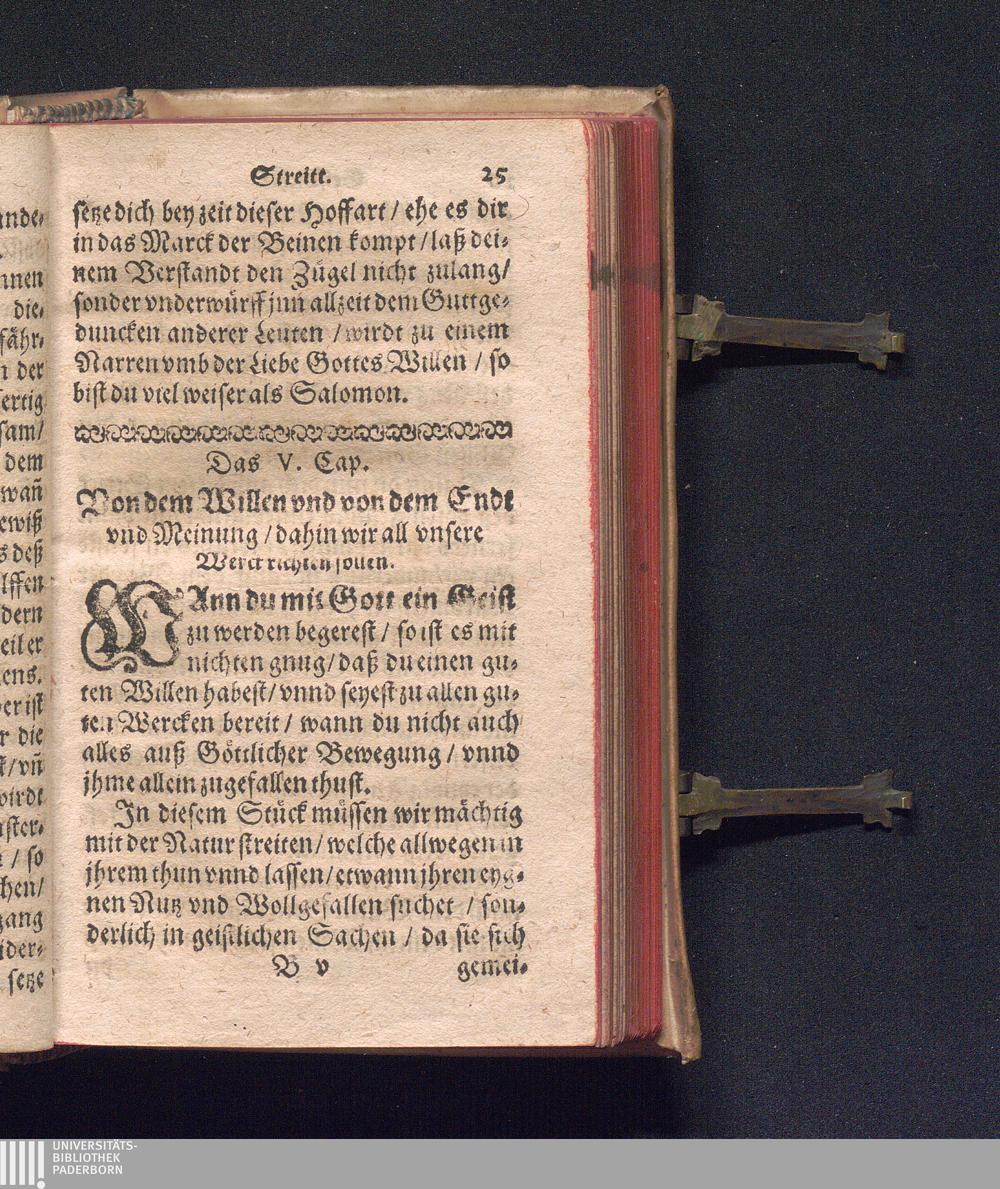 Streitt. 25
setze dich bey zeit dieser Hoffart / ehe es dir
in das Marck der Beinen kompt / laß dei-
nem Verstandt den Zügel nicht zulang /
sonder vnderwürff jnn allzeit dem Guttge-
duncken anderer Leuten / wirdt zu einem
Narren vmb der Liebe Gottes Willen / so
bist du viel weiser als Salomon.
Das V. Cap.
Von dem Willen vnd von dem Endt
vnd Meinung / dahin wir all vnsere
Werck richten sollen.
WAnn du mit Gott ein Geist
zu werden begerest / so ist es mit
nichten gnug / daß du einen gu-
ten Willen habest / vnnd seyest zu allen gu-
ten Wercken bereit / wann du nicht auch
alles auß Göttlicher Bewegung / vnnd
jhme allein zugefallen thust.
In diesem Stück müssen wir mächtig
mit der Natur streiten / welche allwegen in
jhrem thun vnnd lassen / etwann jhren eyg-
nen Nutz vnd Wollgefallen suchet / son-
derlich in geistlichen Sachen / da sie sich
B v gemei-
ande-
nnen
die-
fähr-
n der
ertig
sam /
dem
wañ
ewiß
s deß
lffen
dern
eil er
ens.
er ist
r die
t / vñ
wirdt
nster-
n / so
hen /
gang
ider-
setze
UNIVERSITÄTS-
BIBLIOTHEK
PADERBORN